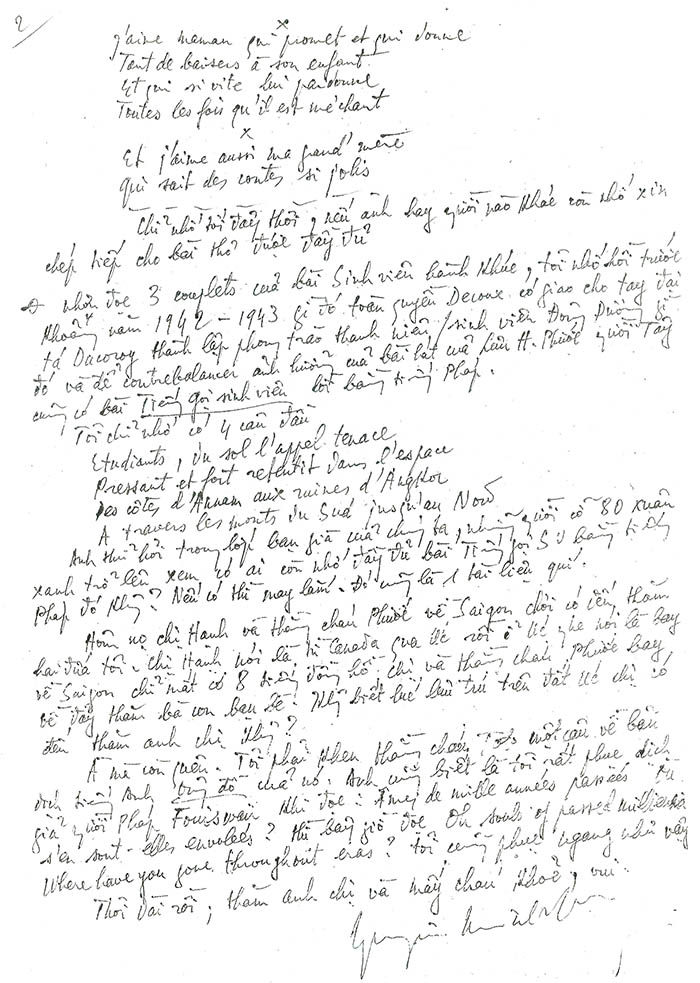 2
x
j'aime maman qui promet et qui donne
Tant de baisers à son enfant
Et qui si vite lui pardonne
Toutes les fois qu'il est méchant
x
Et j'aime aussi ma grand' mère
qui sait des contes si jolis
Chỉ nhớ tới đây thôi, nếu anh hay người nào khác còn nhớ xin
chép tiếp cho bài thơ được đầy đủ
nhân đọc 3 couplets của bài Sinh viên hành khúc, tôi nhớ hồi trước
khoảng năm 1942 - 1943 gì đó toàn quyền Decoux có giao cho tay đại
tá Ducoroy thành lập phong trào thanh niên / sinh viên Đông Dương gì
đó và để contrebalancer ảnh hưởng của bài hát của Lưu H. Phước người Tây
cũng có bài Tiếng gọi sinh viên lời bằng tiếng Pháp.
Tôi chỉ nhớ có 4 câu đầu
Etudiants, du sol l'appel tenace
Pressant et fort retentit dans l'espace
Des côtes d'Annam aux ruines d'Angkor
A travers les monts du Sud jusqu'au Nord
Anh thử hỏi trong lớp bạn già của chúng ta, những người cỡ 80 xuân
xanh trở lên xem có ai còn nhớ đầy đủ bài Tiếng gọi SV bằng tiếng
Pháp đó không? Nếu có thì may lắm. Đó cũng là 1 tài liệu quí.
Hôm nọ chị Hạnh và thằng cháu Phước về Saigon chơi có đến thăm
hai đứa tôi. Chị Hạnh nói là từ Canada qua Úc rồi ở Úc nói là bay
về Saigon chỉ mất có 8 tiếng đồng hồ. chị và thằng cháu Phước bay
về đây thăm bà con bạn bè. Không biết lúc lưu trú trên đất Úc chị có
đến thăm anh chị không?
À mà còn quên. Tôi phải khen thằng cháu một câu về bản
dịch tiếng Anh của nó. Anh cũng biết là tôi rất phục dịch
giả người Pháp khi đọc: Ames de mille années passées
s'en sont-elles envolées? thì bây giờ đọc Oh souls of passed millennia
Where have you gone throughout eras? tôi cũng phục ngang như vậy
Thôi dài rồi, thăm anh chị và mấy cháu khoẻ, vui